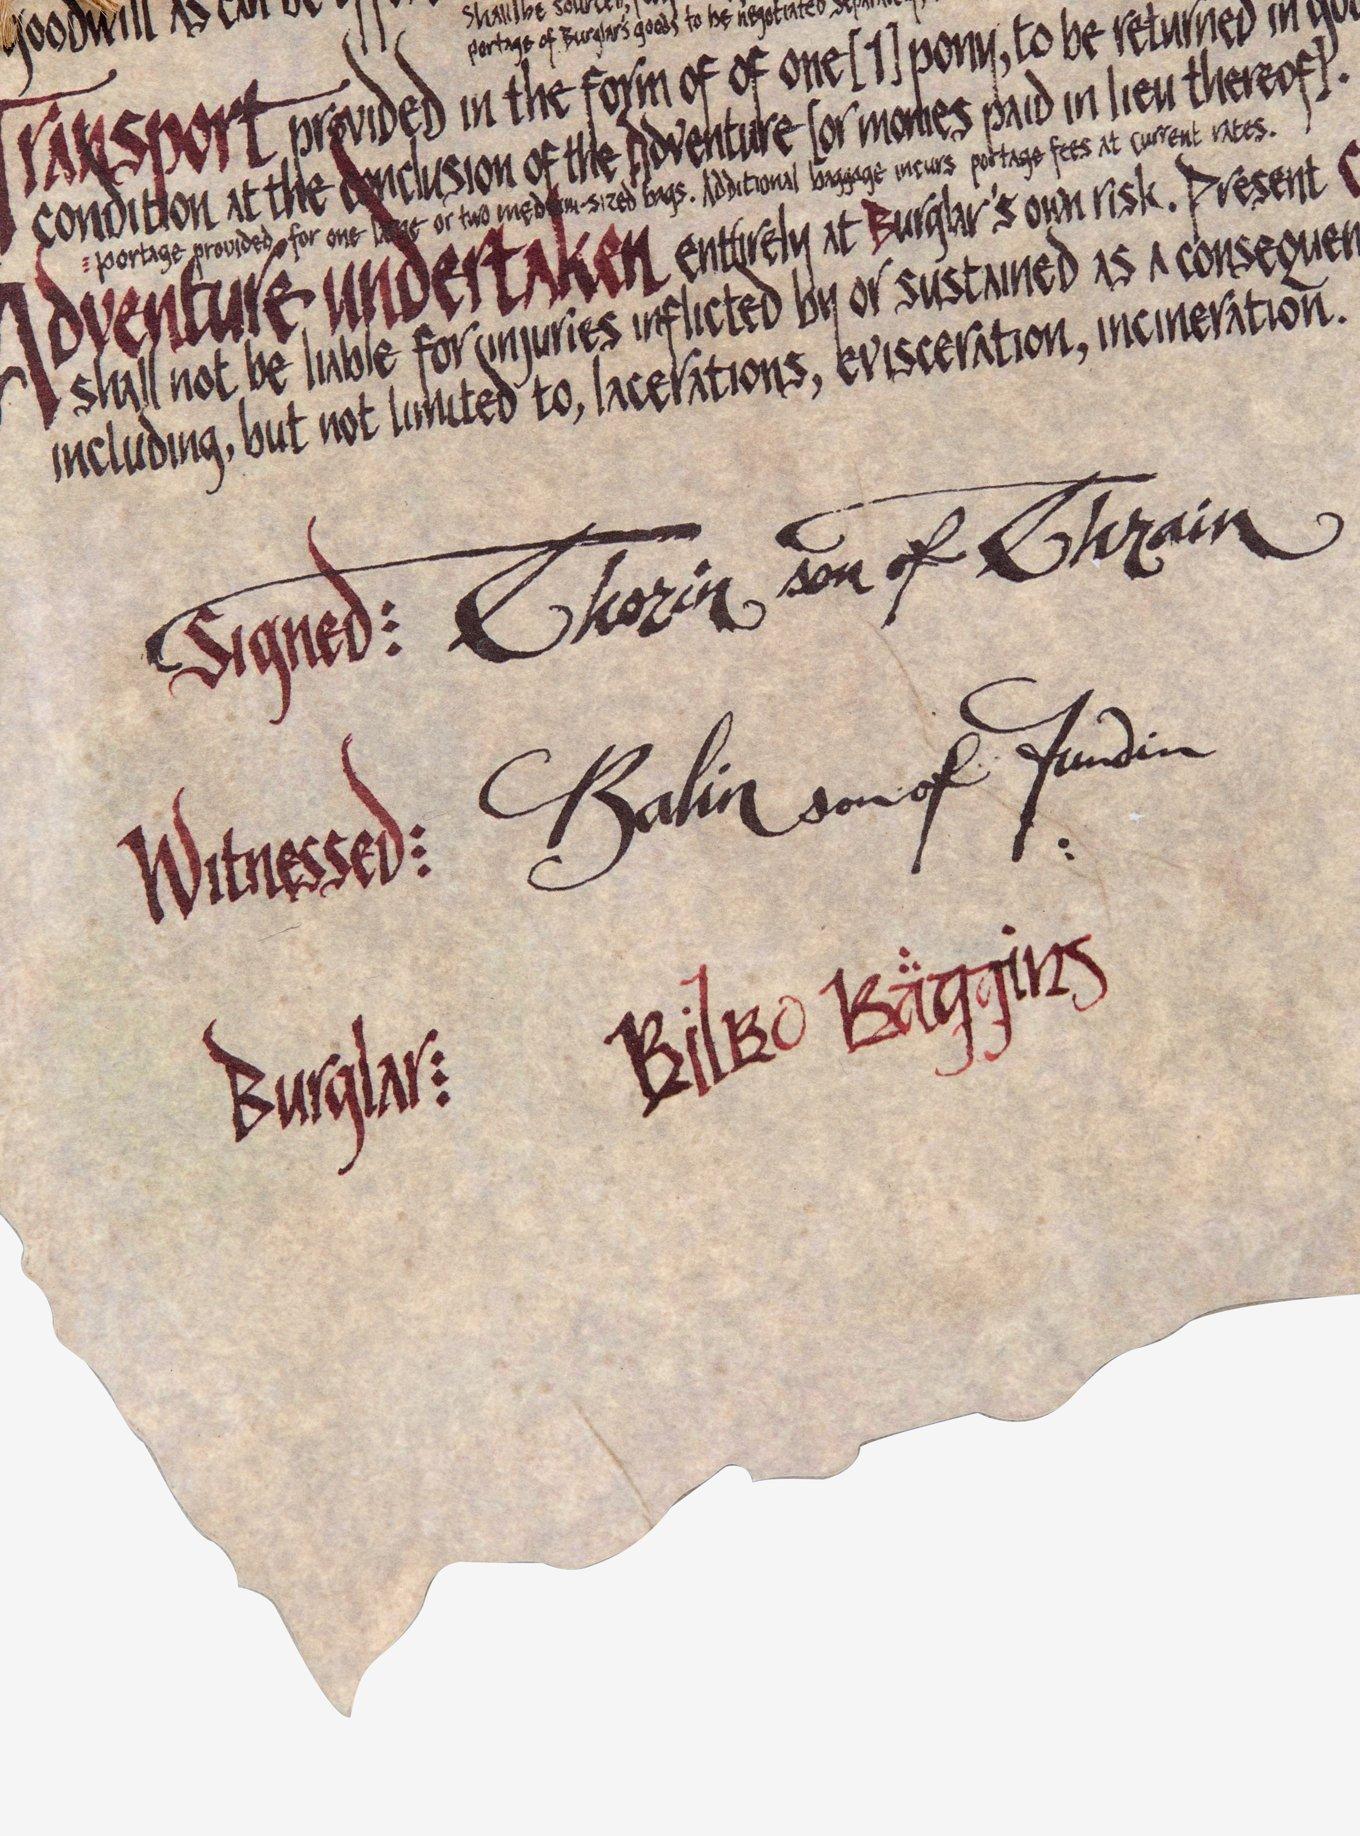 goodwill as can be
shall be sourced,
portage of Burglar's goods to be negotiated separately
Transport provided in the form of of one [1] pony, to be returned in
condition at the conclusion of the Adventure [or monies paid in lieu thereof].
portage provided for one large or two medium-sized bags. Additional baggage incurs portage fees at current rates.
Adventure undertaken entirely at Burglar's own risk. Present
shall not be liable for injuries inflicted by or sustained as a consequen
including, but not limited to, lacerations, evisceration, incineration.
Signed: Thorin son of Thrain
Witnessed: Balin son of Fundin
Burglar: Bilbo Bäggins